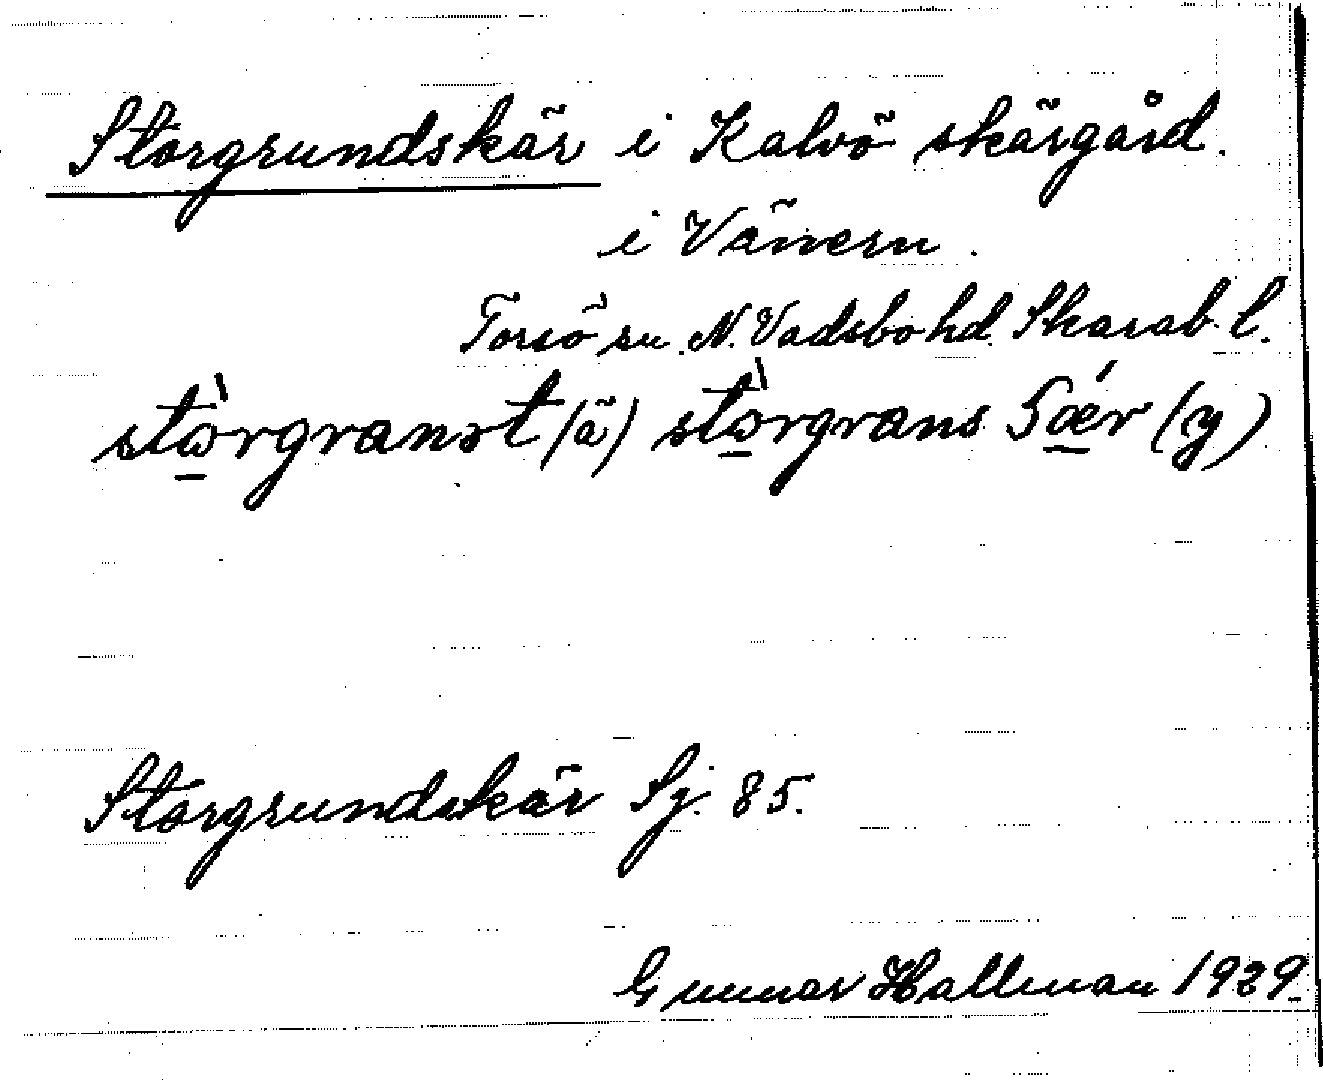 Storgrundskär i Kalvö skärgård.
i Vänern.
Torsö sn. N. Vadsbo hd. Skarab. l.
stòrgranst (ä) stòrgrans Sǽr (y)
Storgrundskär Sj. 85.
Gunnar Hallman 1929.